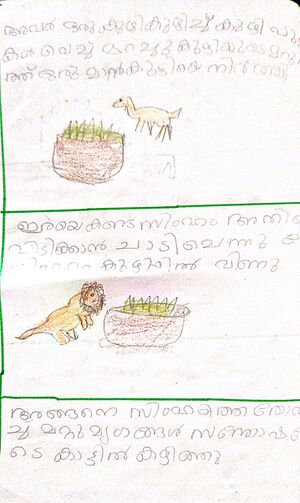 അവർ ഒരു കുഴികുഴിച്ച് കുഴി പുല്
കൾ വെച്ച് മറച്ചു കുഴിയുടെ മുമ്പി
ത്ത് ഒരു മാൻകുട്ടിയെ നിർത്തി
ഇരയെ കണ്ട സിംഹം അതിനെ
പിടിക്കാൻ ചാടിചെന്നു
കുഴിയിൽ വിണു
അങ്ങനെ സിംഹത്തെ തോൽ
ച്ചു മറ്റുമൃഗങ്ങൾ സന്തോഷ
ടെ കാട്ടിൽ കഴിഞ്ഞു